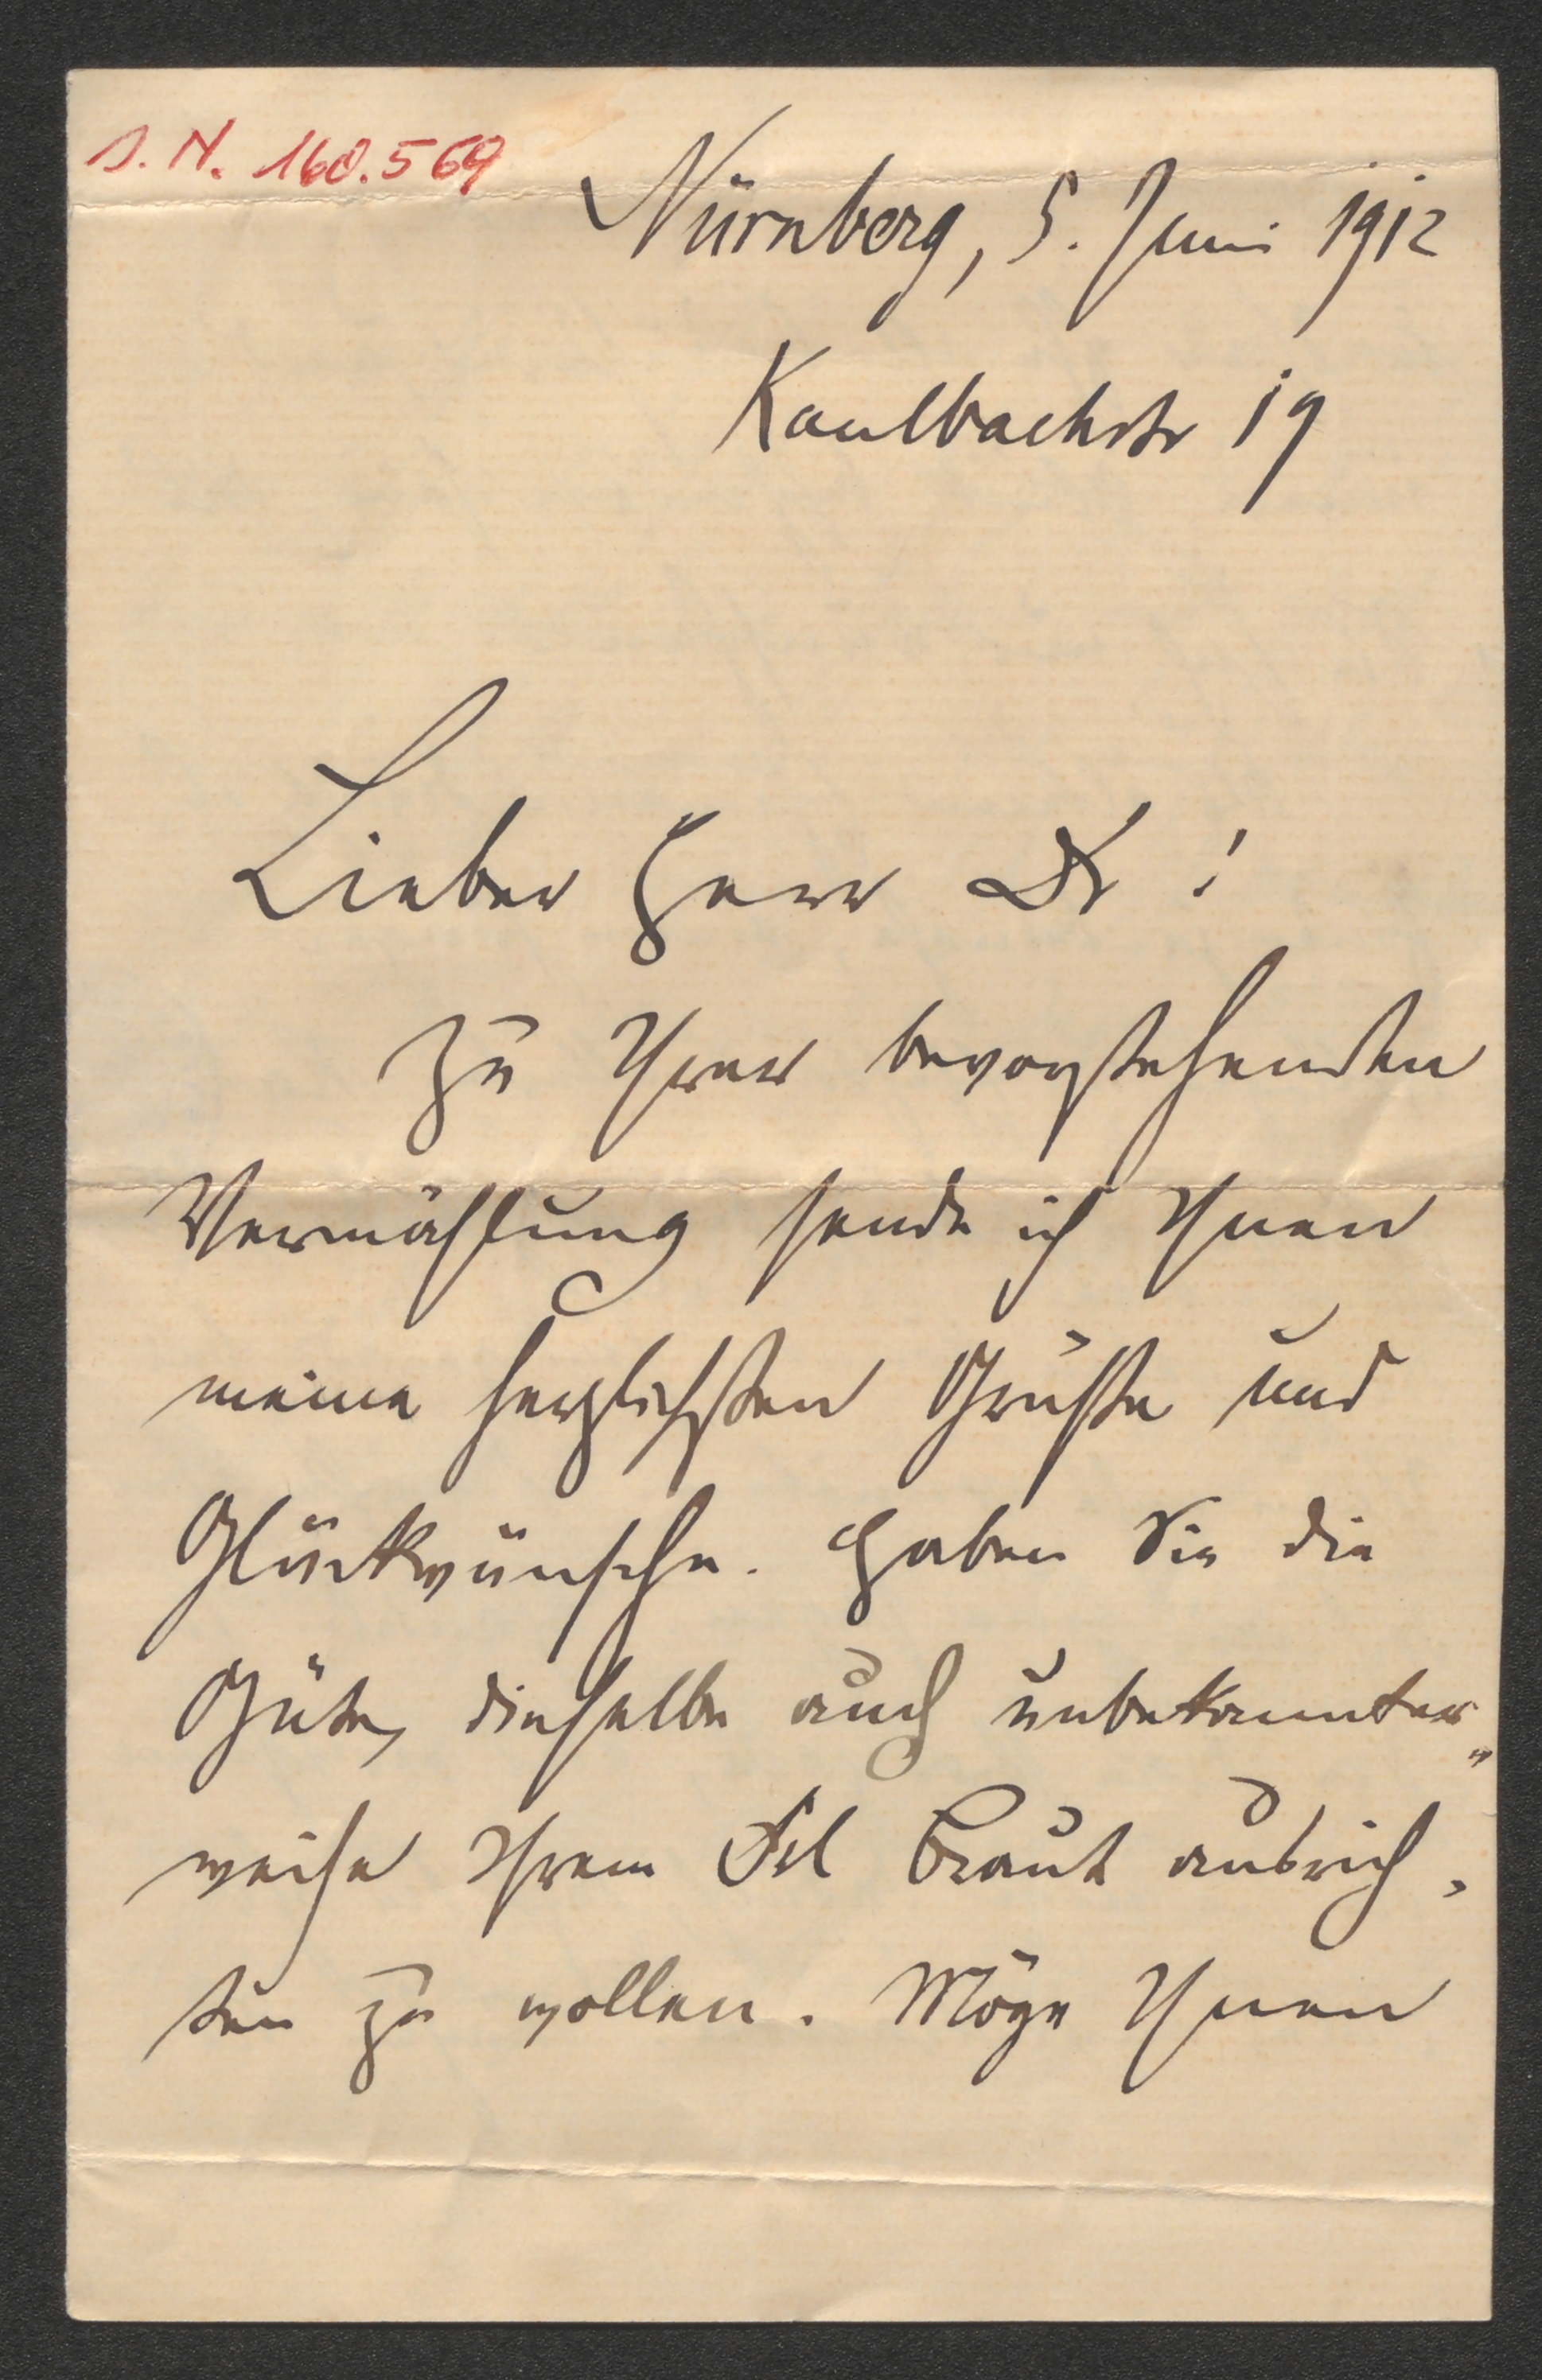 J. N. 160.569
Nürnberg, 5. Juni 1912
Kaulbachstr 19
Lieber Herr Dr!
Zu Ihrer bevorstehenden
Vermählung sende ich Ihnen
meine herzlichsten Grüße und
Glückwünsche. Haben Sie die
Güte, dieselbe auch unbekannter„
weise Ihrem Frl Braut ausrich„
ten zu wollen. Möge Ihnen